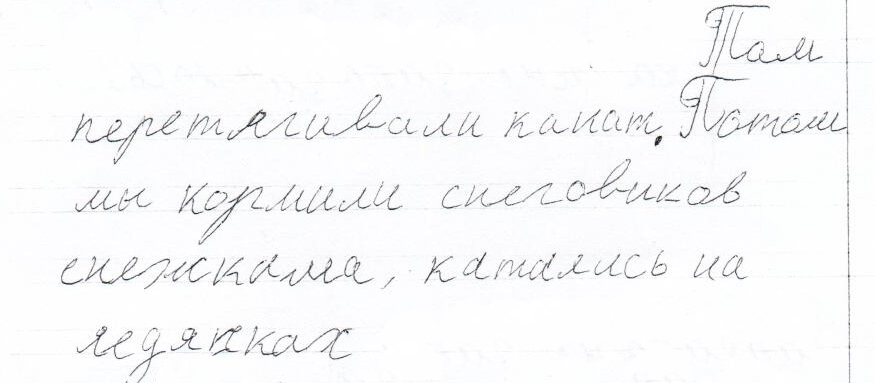 Там
перетягивали канат. Потом
мы кормили снеговиков
снежками, катались на
ледянках